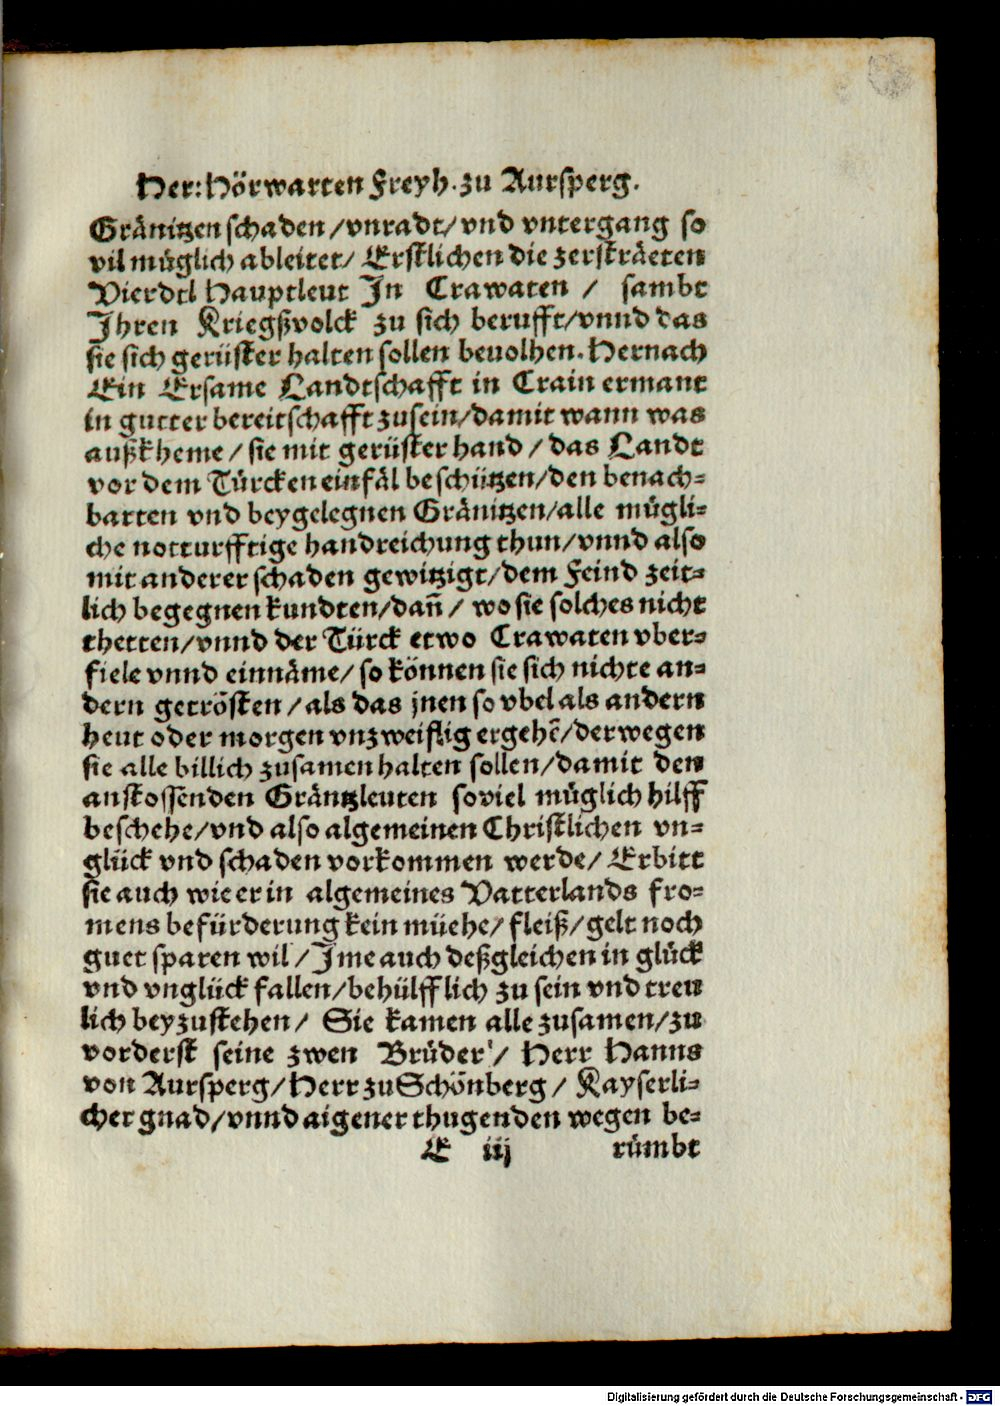 Her: Hörwarten Freyh. zu Aursperg.
Gränitzen schaden / vnradt / vnd vntergang so
vil müglich ableitet / Erstlichen die zersträeten
Vierdtl Hauptleut In Crawaten / sambt
Ihren Kriegßvolck zu sich berufft / vnnd das
sie sich gerüster halten sollen beuolhen. Hernach
Ein Ersame Landtschafft in Crain ermant
in gutter bereitschafft zusein / damit wann was
außkheme / sie mit gerüster hand / das Landt
vor dem Türcken einfäl beschützen / den benach-
barten vnd beygelegnen Gränitzen / alle mügli-
che notturfftige handreichung thun / vnnd also
mit anderer schaden gewitzigt / dem Feind zeit-
lich begegnen kundten / dañ / wo sie solches nicht
thetten / vnnd der Türck etwo Crawaten vber-
fiele vnnd einnäme / so können sie sich nichte an-
dern getrösten / als das jnen so vbel als andern
heut oder morgen vnzweiflig ergehẽ / derwegen
sie alle billich zusamen halten sollen / damit den
anstossenden Gräntzleuten soviel müglich hilff
beschehe / vnd also algemeinen Christlichen vn-
glück vnd schaden vorkommen werde / Erbitt
sie auch wie er in algemeines Vatterlands fro-
mens befürderung kein müehe / fleiß / gelt noch
guet sparen wil / Ime auch deßgleichen in glück
vnd vnglück fallen / behülfflich zu sein vnd treu
lich beyzustehen / Sie kamen alle zusamen / zu
vorderst seine zwen Brüder / Herr Hanns
von Aursperg / Herr zu Schönberg / Kayserli-
cher gnad / vnnd aigener thugenden wegen be-
E iij rümbt
Digitalisierung gefördert durch die Deutsche Forschungsgemeinschaft - DFG